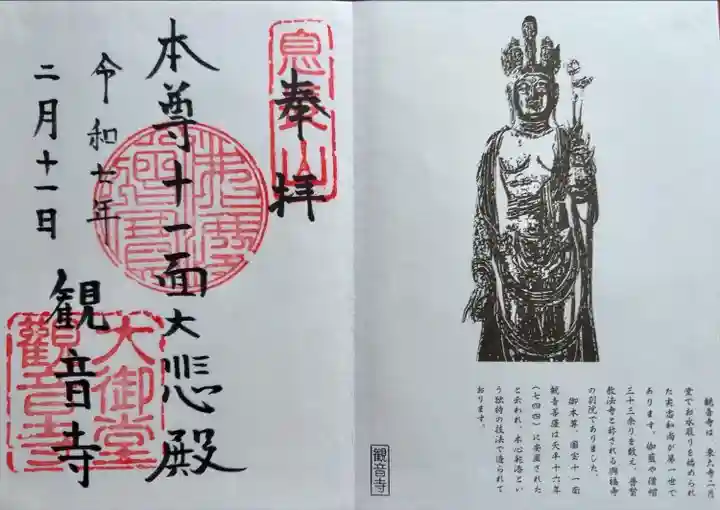 奉拝
本尊十一面大悲殿
令和七年
二月十一日
観音寺
息長山
大御堂
觀音寺
観音寺は、東大寺二月
堂でお水取りを始められ
た実忠和尚が第一世で
あります。伽藍や僧帽
三十三余りを数え、普賢
教法寺と称される興福寺
の別院でありました。
御本尊、国宝十一面
観音菩薩は天平十六年
(七四四)に安置された
と云われ、木心乾漆とい
う独特の技法で造られて
おります。
観音寺